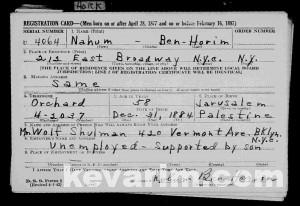 WORK
REGISTRATION CARD—(Men born on or after April 28, 1877 and on or before February 16, 1897)
SERIAL NUMBER 1. NAME (Print) ORDER NUMBER
U 4064 Nahum - Ben-Horim
2. PLACE OF RESIDENCE (Print)
212 East Broadway N.Y.C. N.Y.
[THE PLACE OF RESIDENCE GIVEN ON THE LINE ABOVE WILL DETERMINE LOCAL BOARD
JURISDICTION; LINE 2 OF REGISTRATION CERTIFICATE WILL BE IDENTICAL]
3. MAILING ADDRESS
Same
4. TELEPHONE 5. AGE IN YEARS 6. PLACE OF BIRTH
Orchard 58 Jarusalem
4-1037 Dec. 31, 1884 Palestine
7. NAME AND ADDRESS OF PERSON WHO WILL ALWAYS KNOW YOUR ADDRESS
Mr. Wolf Shulman 420 Vermont Ave. Bklyn. N.Y.C.
8. EMPLOYER'S NAME AND ADDRESS
Unemployed - supported by son
9. PLACE OF EMPLOYMENT OR BUSINESS
I AFFIRM THAT I HAVE VERIFIED ABOVE ANSWERS AND THAT THEY ARE TRUE.
D. S. S. Form 1
(Revised 4-1-42)
kevarim.com